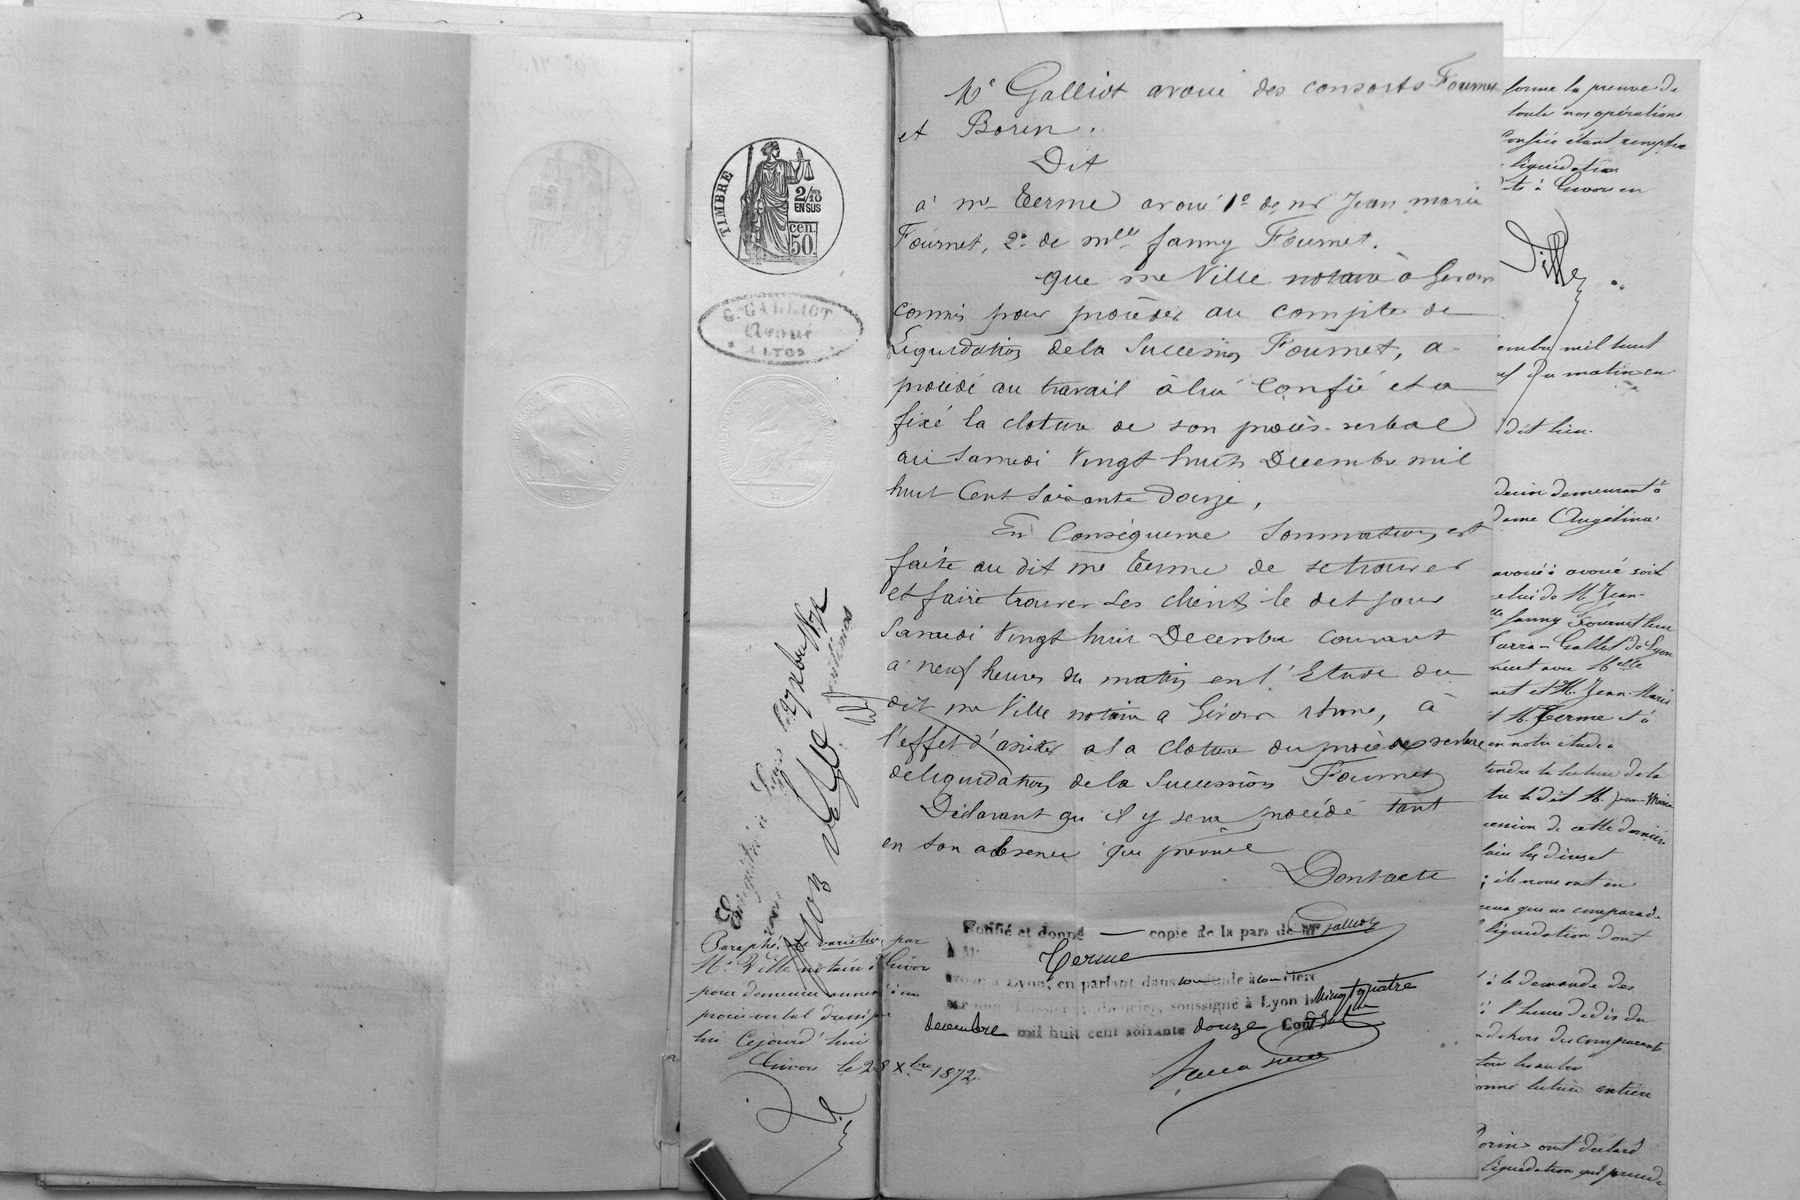 TIMBRE
2/10
EN SUS
cen.
50.
G. GALLIOT
Avoué
A LYON
Me Galliot avoué des consorts Fournet
et Borin.
Dit
à me Terme avoué 1o de mr Jean marie
Fournet, 2o de melle fanny Fournet.
que me Ville notaire à Givors
commis pour procéder au compte de
Liquidation dela Succession Fournet, a
procédé au travail à lui confié et a
fixé la cloture de son procès-verbal
au Samedi Vingt huit Decembre mil
huit Cent Soixante douze,
En Conséquence Sommation est
faite au dit me Terme de se trouver
et faire trouver ses clients le dit jour
Samedi Vingt huit Decembre courant
à neuf heures du matin en l'Etude du
dit me Ville notaire a Givors rhone, à
l'effet d'assister a la cloture du procès verbal
deliquidation de la Succession Fournet
Déclarant qu'il y sera procédé tant
en son absence que présence
Dont acte
Notifié et donné — copie de la part de Me Galliot
à Me Terme
avoué à Lyon, en parlant dans son étude à son clerc
soussigné à Lyon le Vingt quatre
decembre mil huit cent soixante douze Cout
Enregistré à Lyon
Paraphé ne varietur par
Me Ville notaire à Givors
pour demeurer annexé à un
procès verbal dressé par
lui Cejourd'hui
Givors le 28 Xbre 1872.
forme la preuve de
toute nos opérations
confiée étant remplie
liquidation
à Givors en
Ville
mil huit
du matin en
dit lieu.
demeurant à
dame Angélina
avoué à avoué soit
celui de M. Jean-
fanny Fournet
Gallet de Lyon
avec Melle
et M. Jean-Marie
M. Terme et à
en notre étude à
entendre la lecture de la
le dit M. Jean-Marie
succession de cette dernière
ils nous ont en
liquidation dont
à la demande des
l'heure
en dehors des comparants
donné lecture entière
Borin ont déclaré
liquidation qui précède